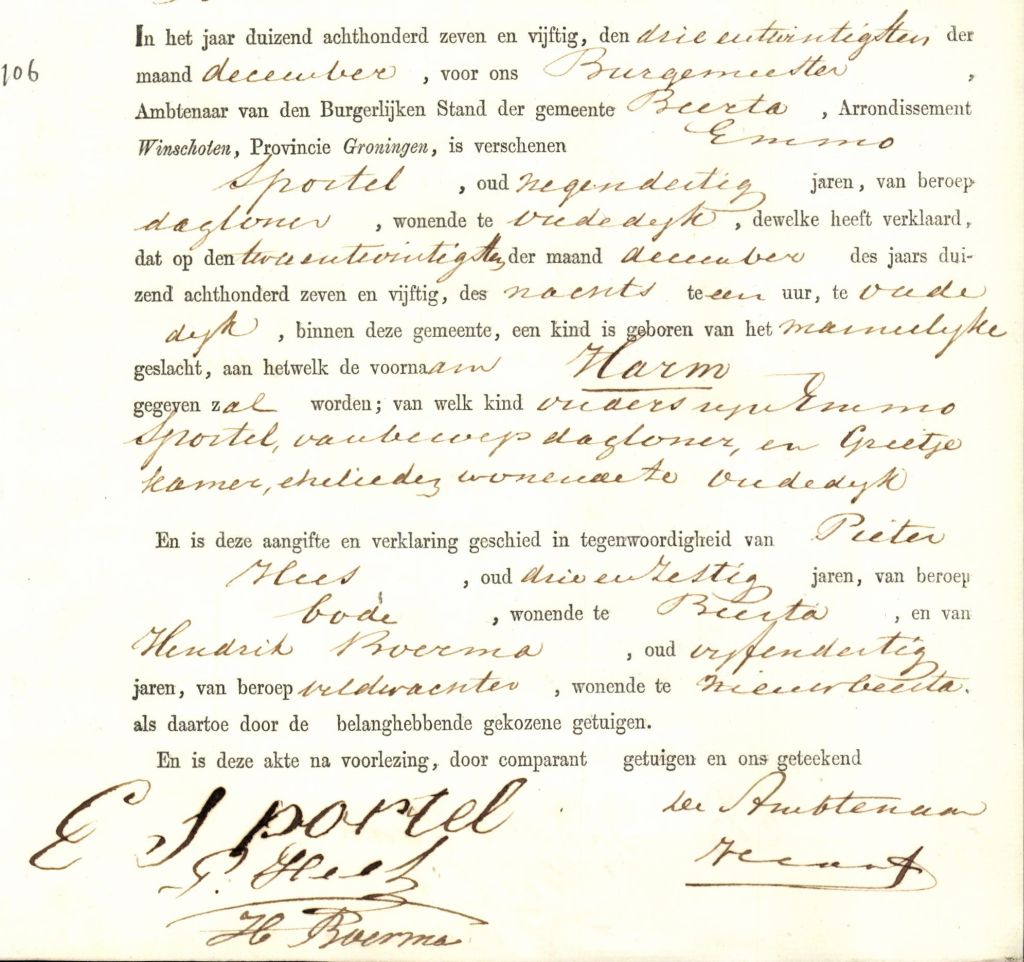 106
In het jaar duizend achthonderd zeven en vijftig, den drie entwintigsten der
maand december , voor ons Burgemeester ,
Ambtenaar van den Burgerlijken Stand der gemeente Beerta , Arrondissement
Winschoten, Provincie Groningen, is verschenen Emmo
Sportel , oud negendertig jaren, van beroep
dagloner , wonende te Oudedijk , dewelke heeft verklaard,
dat op den twee entwintigsten der maand december des jaars dui-
zend achthonderd zeven en vijftig, des nachts te een uur, te Oude
dijk , binnen deze gemeente, een kind is geboren van het mannelijke
geslacht, aan hetwelk de voornaam Harm
gegeven zal worden; van welk kind ouders zijn Emmo
Sportel, van beroep dagloner, en Greetje
Kamer, ehelieden wonende te Oudedijk
En is deze aangifte en verklaring geschied in tegenwoordigheid van Pieter
Hees , oud drie en zestig jaren, van beroep
bode , wonende te Beerta , en van
Hendrik Boerma , oud vyfendertig
jaren, van beroep veldwachter , wonende te Nieuwbeerta.
als daartoe door de belanghebbende gekozene getuigen.
En is deze akte na voorlezing, door comparant getuigen en ons geteekend
E Sportel
De Ambtenaar
P. Hees
H Boerma